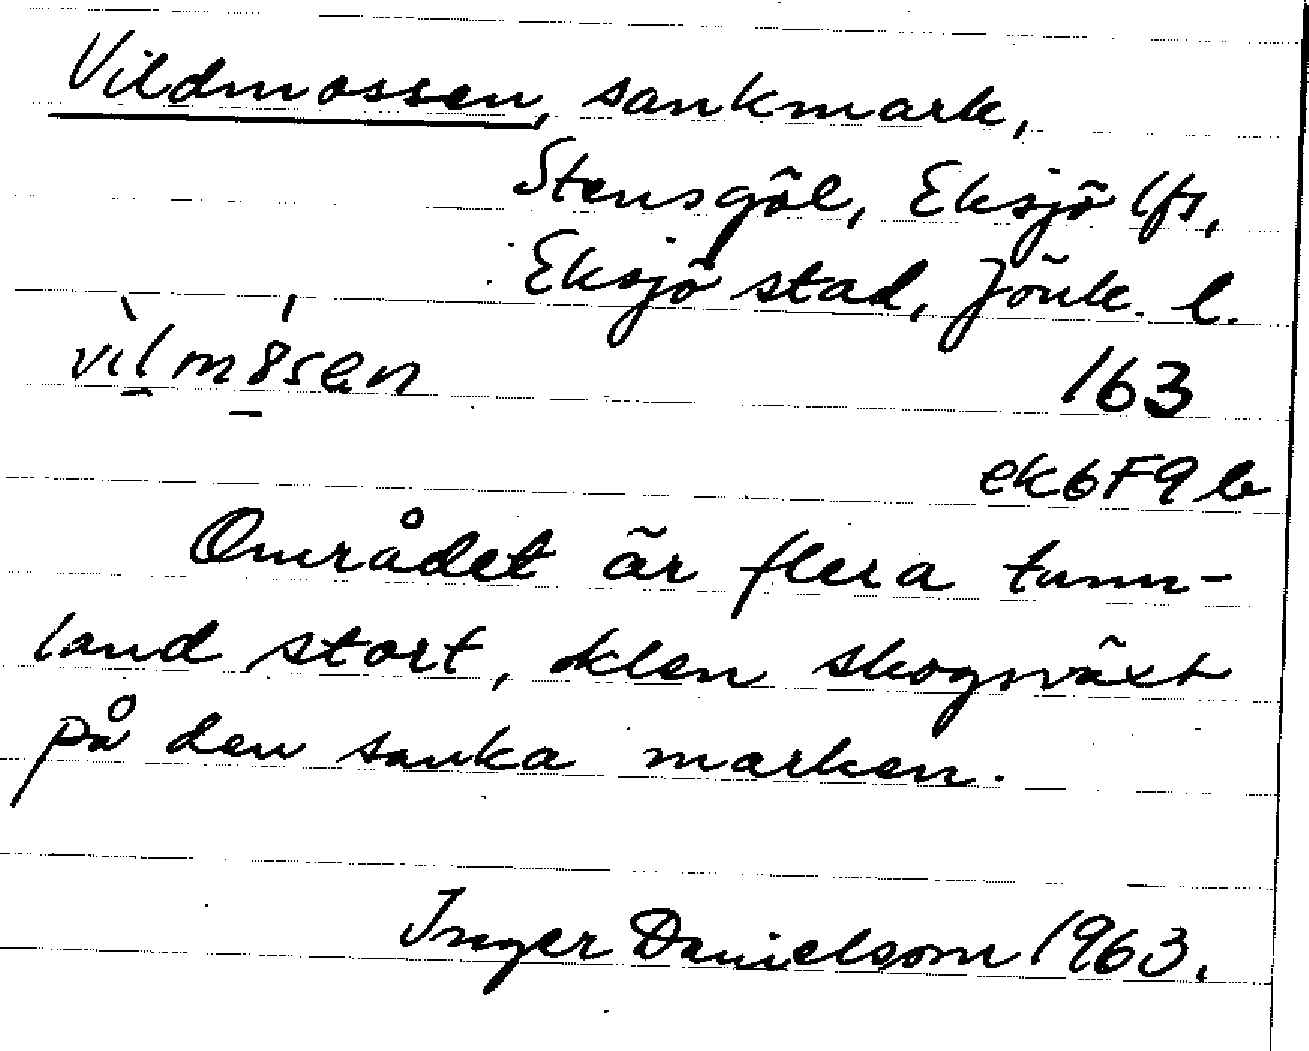 Vildmossen, sankmark,
Stensgöl, Eksjö lfs,
Eksjö stad, Jönk. l.
vìlmósen
163
ek6F9b
Området är flera tunn-
land stort, klen skogsväxt
på den sanka marken.
Inger Danielsom 1963.